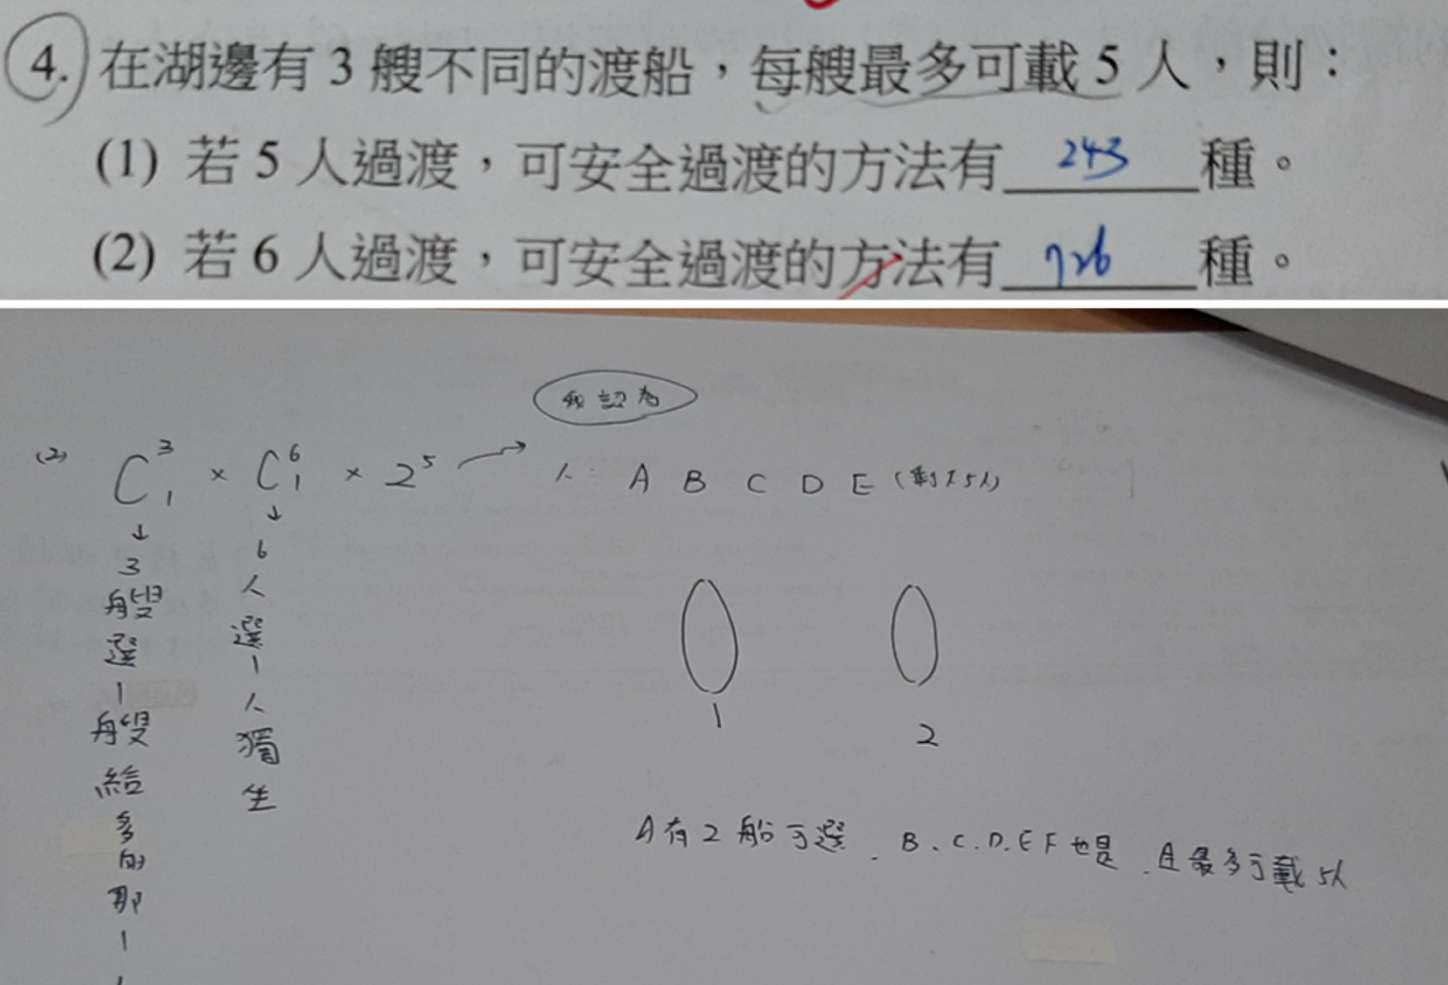 4. 在湖邊有 3 艘不同的渡船，每艘最多可載 5 人，則：
(1) 若 5 人過渡，可安全過渡的方法有 243 種。
(2) 若 6 人過渡，可安全過渡的方法有 726 種。
我認為
(2) C³₁ × C⁶₁ × 2⁵ → 人: A B C D E (剩下5人)
↓ 3艘選1艘給多的那1
↓ 6人選1人獨坐
1 2
A有2船可選、B、C、D、E F也是、且最多可載5人